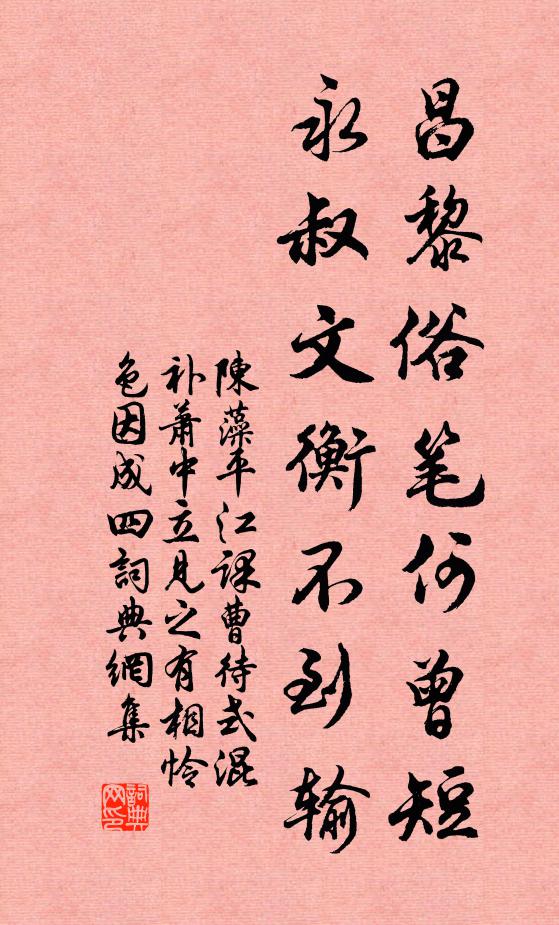 昌黎俗笔何曾短
永叔文衡不到输
陳藻平江課曹待式混
补萧中立見之有相怜
色因成四詞典網集
詞典网印